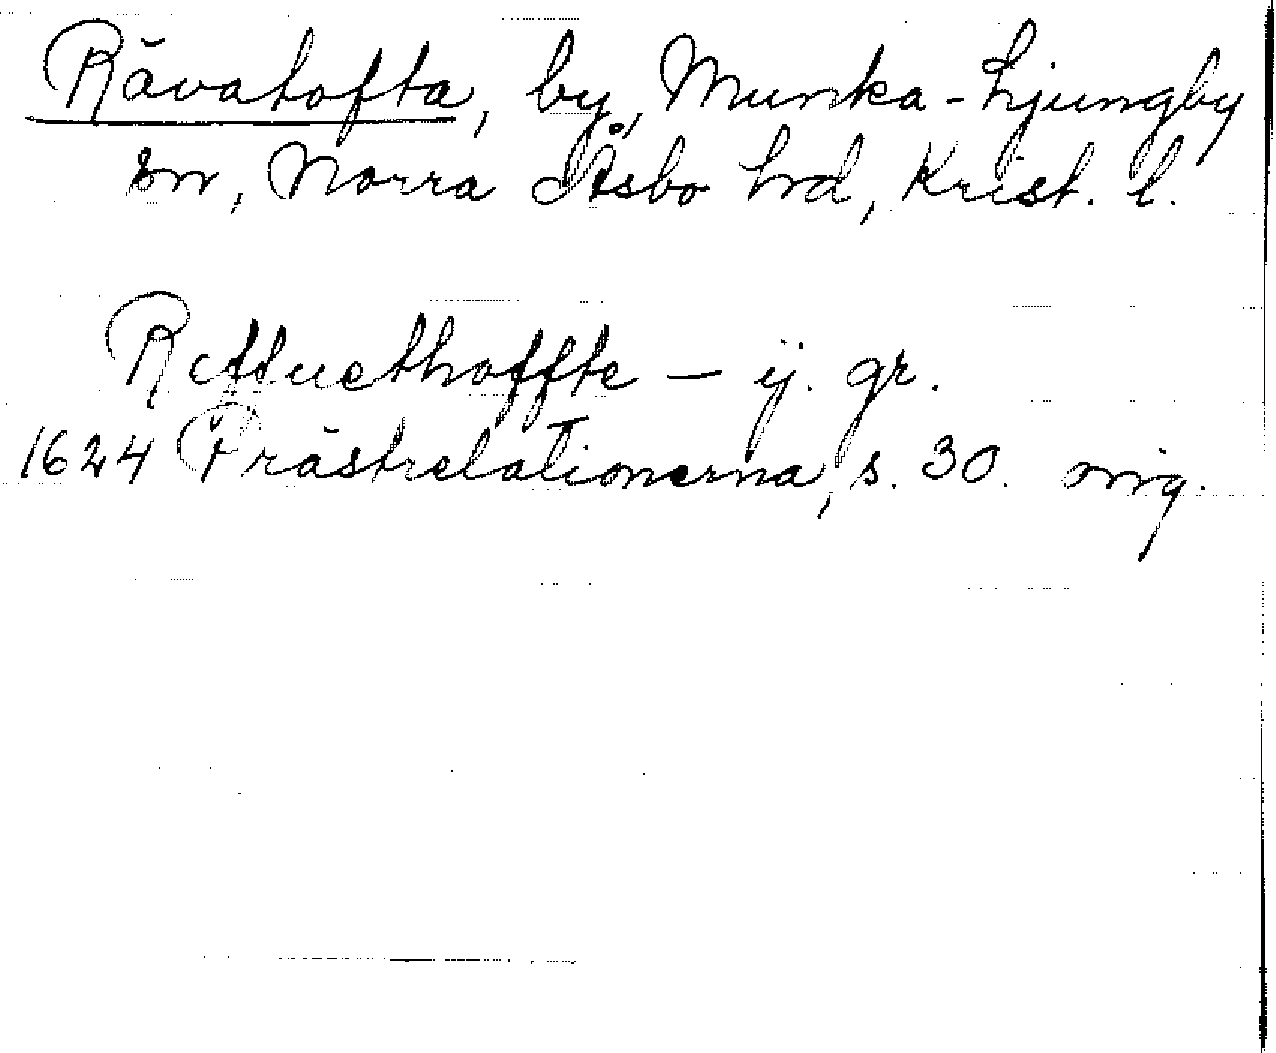 Rävatofta, by, Munka-Ljungby
sn, Norra Åsbo hd, Krist. l.
Reffuethoffte — ij. gr.
1624 Prästrelationerna, s. 30. orig.